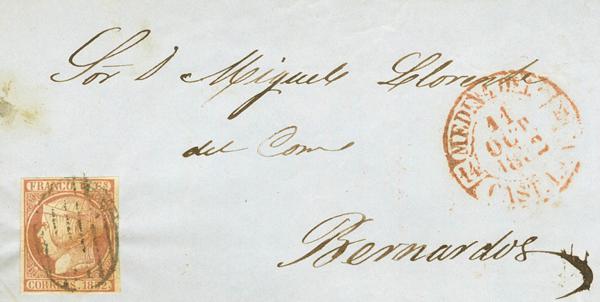 Sor D Miguel Llorente
del Com
Bernardos
MEDINA DEL
11
OCT
1852
CAST. LA V.
14
FRANCO 6 CS
CORREOS. 1852.